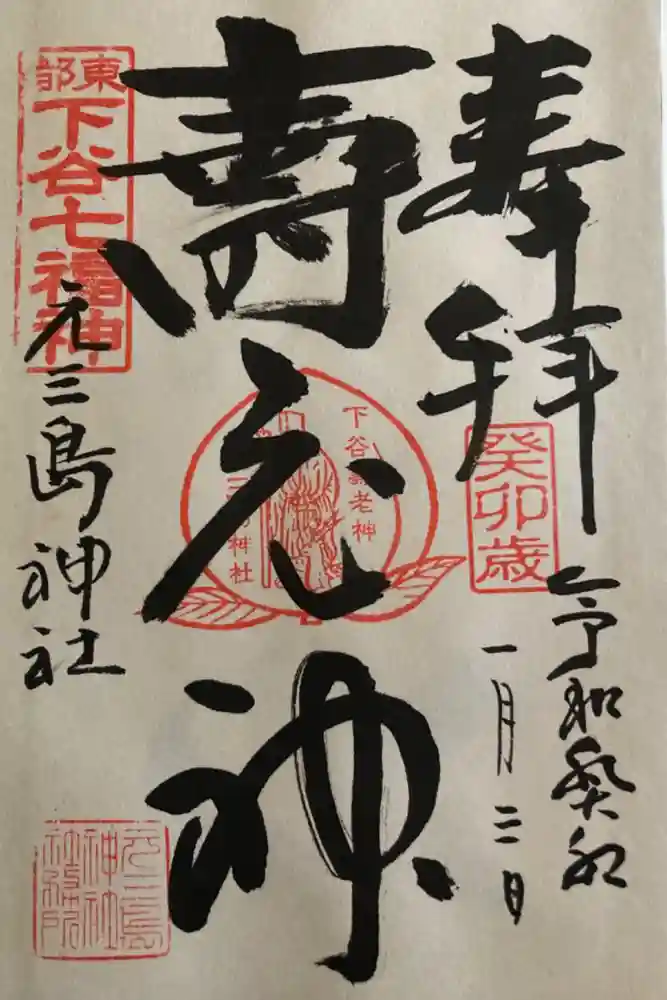 奉拝
癸卯歳
令和癸卯
一月二日
壽老神
下谷壽老神
東都
下谷七福神
元三島神社
元三島
神社
社務所